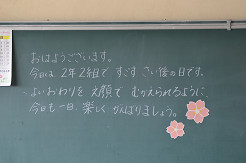 おはようございます。
今日は 2年2組で すごす さい後の日です。
よいおわりを 笑顔で むかえられるように、
今日も一日、楽しく がんばりましょう。